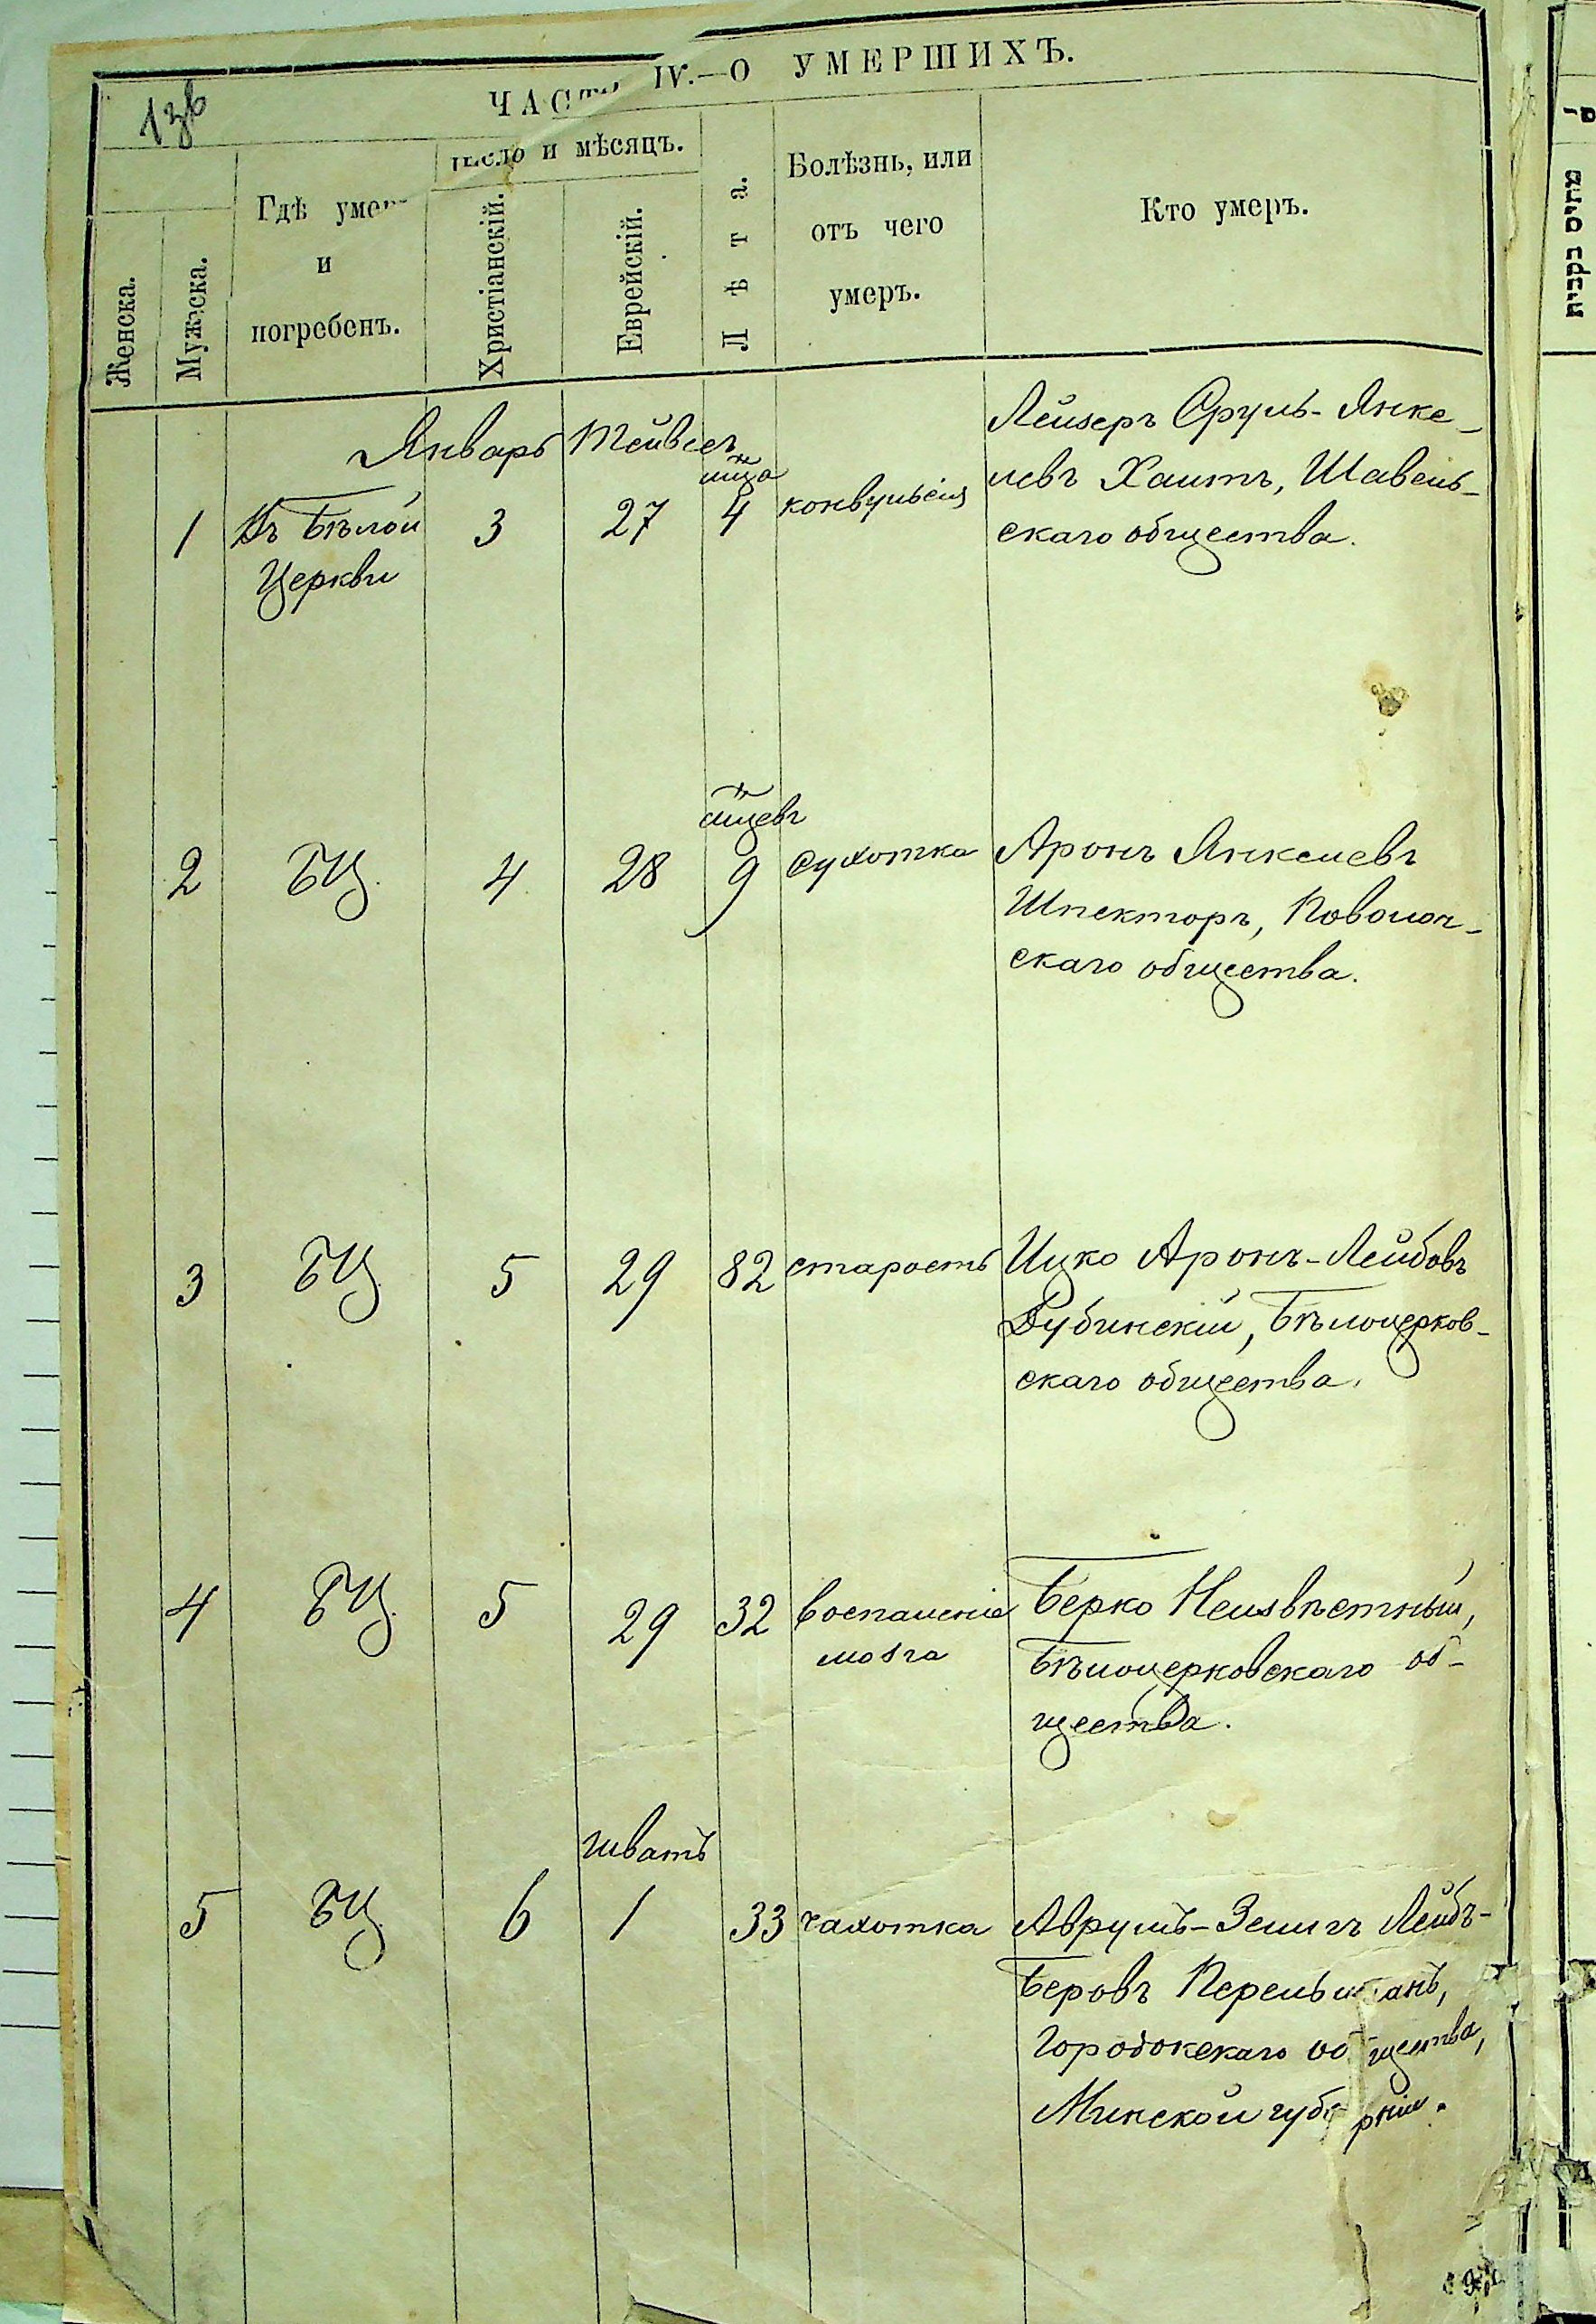 ЧАСТЬ IV.—О УМЕРШИХЪ.
Женска.
Мужска.
Гдѣ умеръ
и
погребенъ.
Число и мѣсяцъ.
Христіанскій.
Еврейскій.
Лѣта.
Болѣзнь, или
отъ чего
умеръ.
Кто умеръ.
Январь Тейвесъ
1 Въ Бѣлой
Церкви
3 27 мца 4 конвульсія
Лейзеръ Сруль-Янке-
левъ Хаитъ, Шавель-
скаго общества.
2 БЦ. 4 28 мцевъ 9 сухотка
Аронъ Янкелевъ
Шпекторъ, Поволоч-
скаго общества.
3 БЦ. 5 29 82 старость
Ицко Аронъ-Лейбовъ
Рубинскій, Бѣлоцерков-
скаго общества.
4 БЦ. 5 29 32 воспаленіе
мозга
Берко Неизвѣстный,
Бѣлоцерковскаго об-
щества.
Шватъ
5 БЦ. 6 1 33 чахотка
Аврумъ-Зелигъ Лейбъ-
Беровъ Перельманъ,
Городокскаго общества,
Минской губерніи.